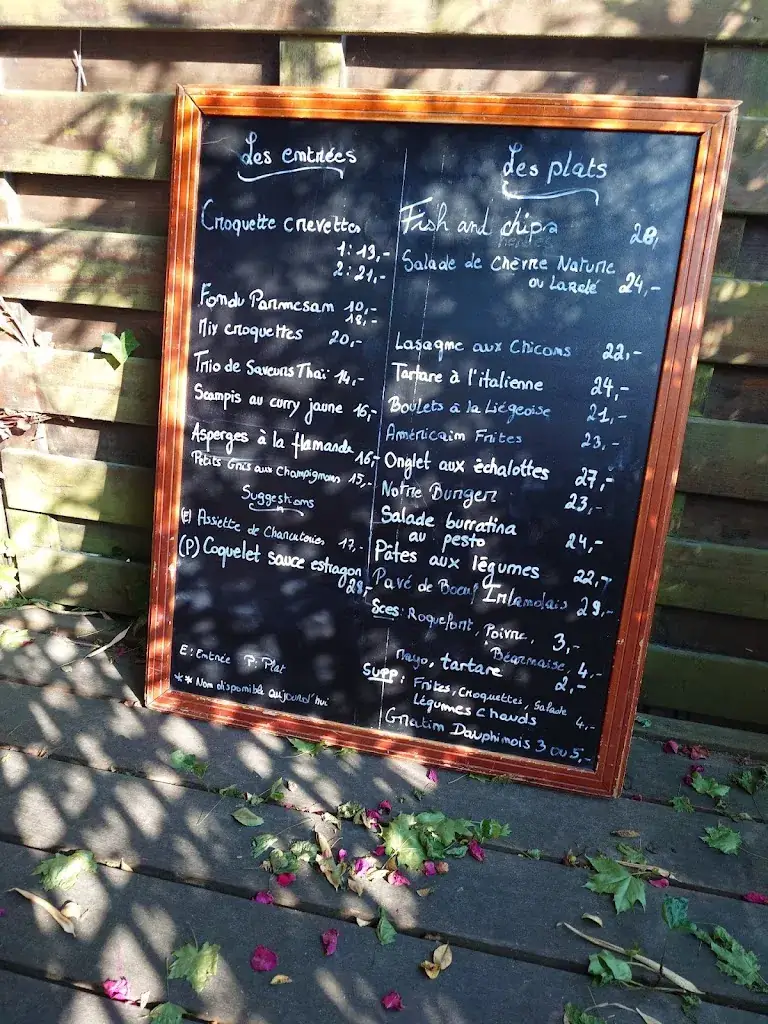 Les entrées
Croquette crevettes
1: 13,-
2: 21,-
Fondu Parmesam 10,-
18,-
Mix croquettes 20,-
Trio de Saveurs Thaï 14,-
Scampis au curry jaune 16,-
Asperges à la flamande 16,-
Petits Gris aux Champignons 15,-
Suggestions
(E) Assiette de Charcuteries 17,-
(P) Coquelet sauce estragon
28,-
E: Entrée P: Plat
** Non disponible aujourd'hui
Les plats
Fish and chips 28,
Salade de Chèvre Nature
ou Lardé 24,-
Lasagne aux Chicons 22,-
Tartare à l'italienne 24,-
Boulets à la Liégeoise 21,-
Américain Frites 23,-
Onglet aux échalottes 27,-
Notre Burger 23,-
Salade burratina
au pesto 24,-
Pâtes aux légumes 22,-
Pavé de Boeuf Irlandais 29,-
Sces: Roquefort, Poivre, 3,-
Béarnaise, 4,-
Mayo, tartare 2,-
Supp: Frites, Croquettes, Salade
Légumes Chauds 4,-
Gratin Dauphinois 3 ou 5,-